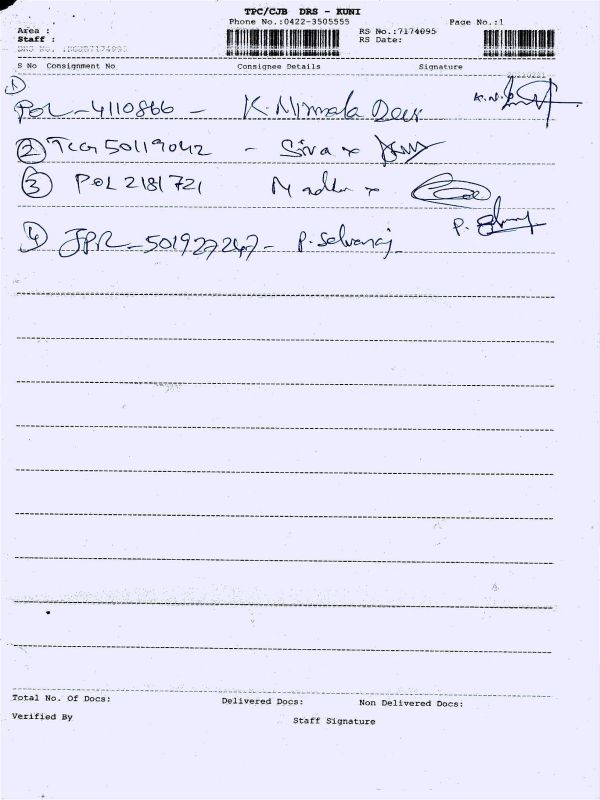 TPC/CJB DRS - KUNI
Phone No.:0422-3505555 Page No.:1
Area : RS No.:7174095
Staff : RS Date:
S No Consignment No Consignee Details Signature
1 POL-4110866 - K. Nirmala Devi
2 TCG 50119042 - Siva
3 POL 2181721 Madhu
4 JPR-501927247- P. Selvaraj
Total No. Of Docs: Delivered Docs: Non Delivered Docs:
Verified By Staff Signature